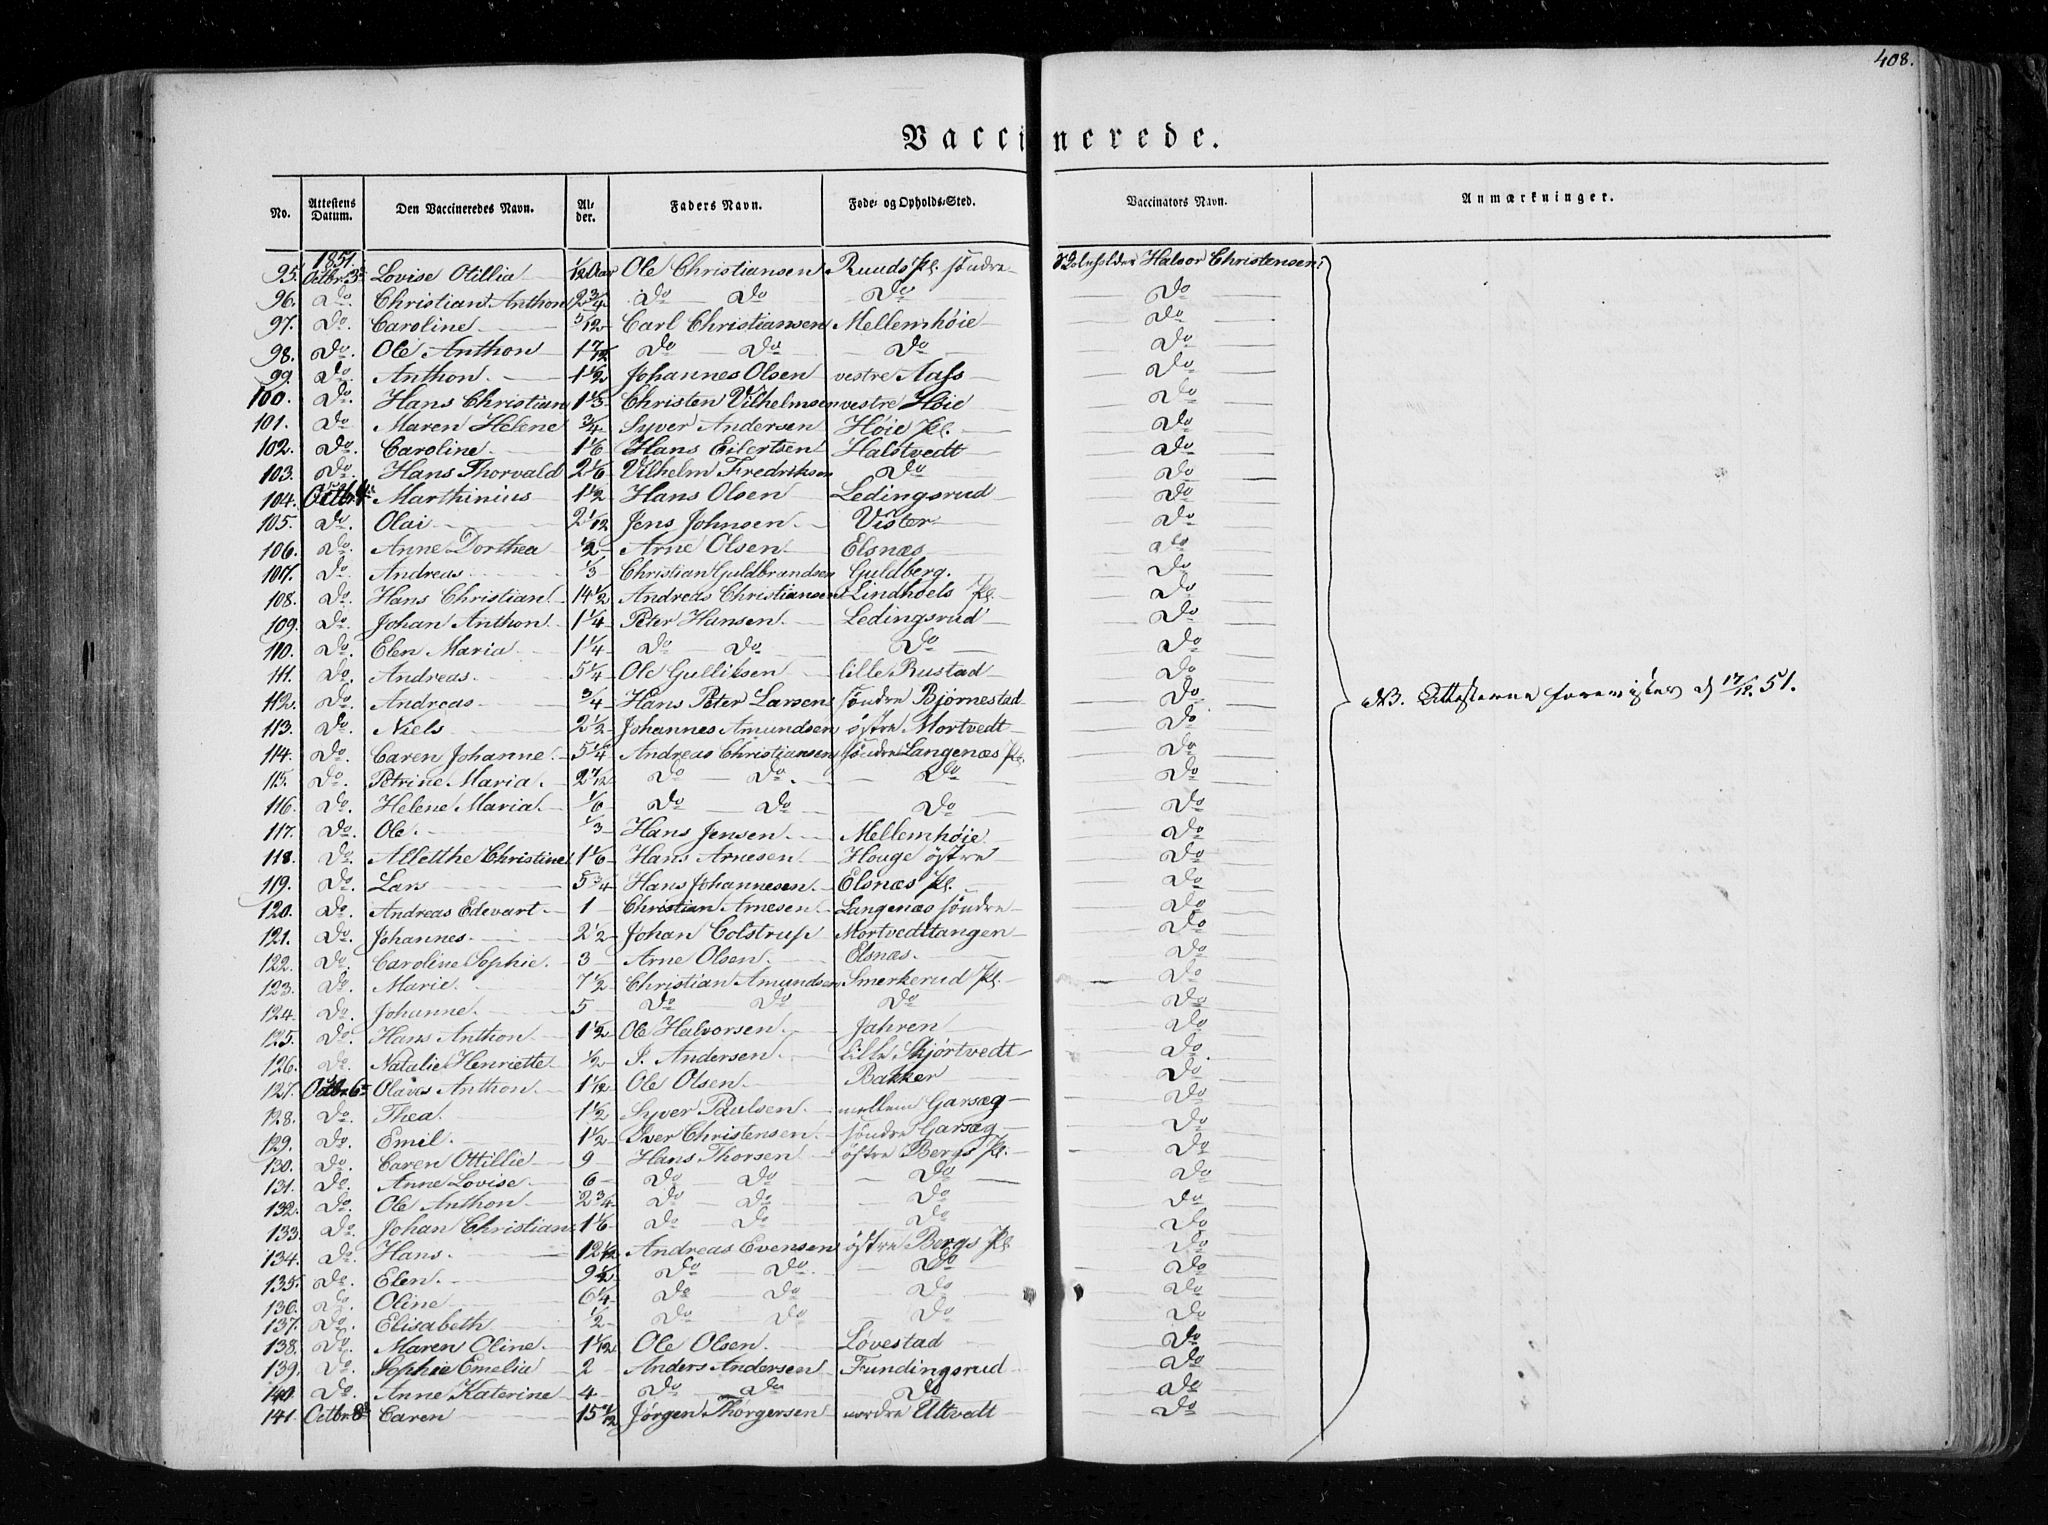 408.
Vaccinerede.
No. | Attestens Datum. | Den Vaccineredes Navn. | Alder. | Faders Navn. | Føde- og Opholds-Sted. | Vaccinators Navn. | Anmærkninger.
1851.
95. Octbr. 3 Lovise Otillia 1/12 Aar Ole Christiansen Ruuds Pl. søndre Halvor Christensen
96. Do. Christian Anthon 2 3/4 Do Do Do Do
97. Do. Caroline 5/12 Carl Christiansen Mellemhøie Do
98. Do. Ole Anthon 1 7/12 Do Do Do Do
99. Do. Anthon. 1 1/2 Johannes Olsen vestre Aass Do
100. Do. Hans Christian 1 1/3 Christen Vilhelmsen vestre Høie Do
101. Do Maren Helene 3/4 Syver Andersen Høie Pl. Do
102. Do. Caroline. 1 1/6 Hans Eilertsen Halstvedt Do
103. Do Hans Thorvald 2 1/6 Vilhelm Fredriksen Do Do
104. Octbr. 4 Marthinius 1 1/2 Hans Olsen Ledingsrud Do
105. Do. Olai 2 1/12 Jens Johnsen. Vister Do
106. Do. Anne Dorthea 1/2 Arne Olsen. Elsnæs Do
107. Do. Andreas. 1/3 Christian Guldbrandsen Guldberg. Do
108. Do. Hans Christian. 14 1/2 Andreas Christiansen Lindhoels Pl. Do
109. Do. Johan Anthon. 1 1/4 Peter Hansen. Ledingsrud Do
110. Do. Elen Maria 1 1/4 Do Do. Do Do
111. Do. Andreas. 5 1/4 Ole Gulliksen lille Rustad Do
112. Do. Andreas 3/4 Hans Peter Larsen søndre Bjørnestad Do NB. Attesterne foreviste d 17/12 51.
113. Do. Niels 2 1/2 Johannes Amundsen østre Mortvedt Do
114. Do. Caren Johanne. 5 1/4 Andreas Christiansen søndre Langenæs Pl. Do
115. Do. Petrine Maria. 2 7/12 Do Do. Do Do
116. Do. Helene Maria. 1/6 Do Do Do Do
117. Do. Ole. 1/3 Hans Jensen. Mellemhøie. Do
118. Do. Alletthe Christine 1 1/6 Hans Arnesen. Houge østre Do
119. Do. Lars 5 3/4 Hans Johannesen. Elsnæs Pl. Do
120. Do. Andreas Edevart. 1 Christian Arnesen. Langenæs søndre Do
121. Do. Johannes. 2 1/2 Johan Colstrup Mortvedttangen Do
122. Do. Caroline Sophie. 3 Arne Olsen. Elsnæs. Do
123. Do. Marie. 7 1/2 Christian Amundsen Smerkerud Pl. Do
124. Do. Johanne. 5 Do Do Do Do
125. Do. Hans Anthon. 1 1/2 Ole Halvorsen. Jahren Do
126. Do. Natalie Henriette 1/2 J. Andersen. lille Skjørtvedt Do
127. Octbr. 6 Olaves Anthon. 1 1/12 Ole Olsen. Bakker Do
128. Do. Thea. 1 1/2 Syver Paulsen. mellem Garsæg Do
129. Do. Emil. 1 1/2 Iver Christensen. søndre Garsæg Do
130. Do. Caren Ottillie 9 Hans Thorsen østre Bergs Pl. Do
131. Do. Anne Lovise. 6 Do Do Do Do
132. Do. Ole Anthon 2 3/4 Do Do Do Do
133. Do. Johan Christian 1 1/6 Do Do Do Do
134. Do. Hans. 12 1/2 Andreas Evensen østre Bergs Pl. Do
135. Do. Elen. 9 1/2 Do Do. Do Do
136. Do. Oline 6 1/4 Do Do Do Do
137. Do. Elisabeth 1/2 Do Do Do Do
138. Do. Maren Oline. 1 1/12 Ole Olsen. Løvestad Do
139. Do. Sophie Emelia 2 Anders Andersen Fundingsrud Do
140. Do. Anne Katerine 4 Do Do Do Do
141. Octbr. 8 Caren Jørgen Thørgersen nordre Ultvedt Do